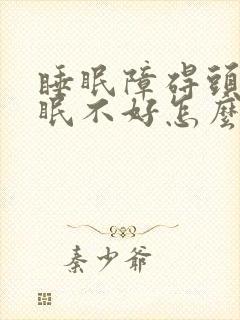 睡眠障碍頭
眠不好怎麼
秦少爺